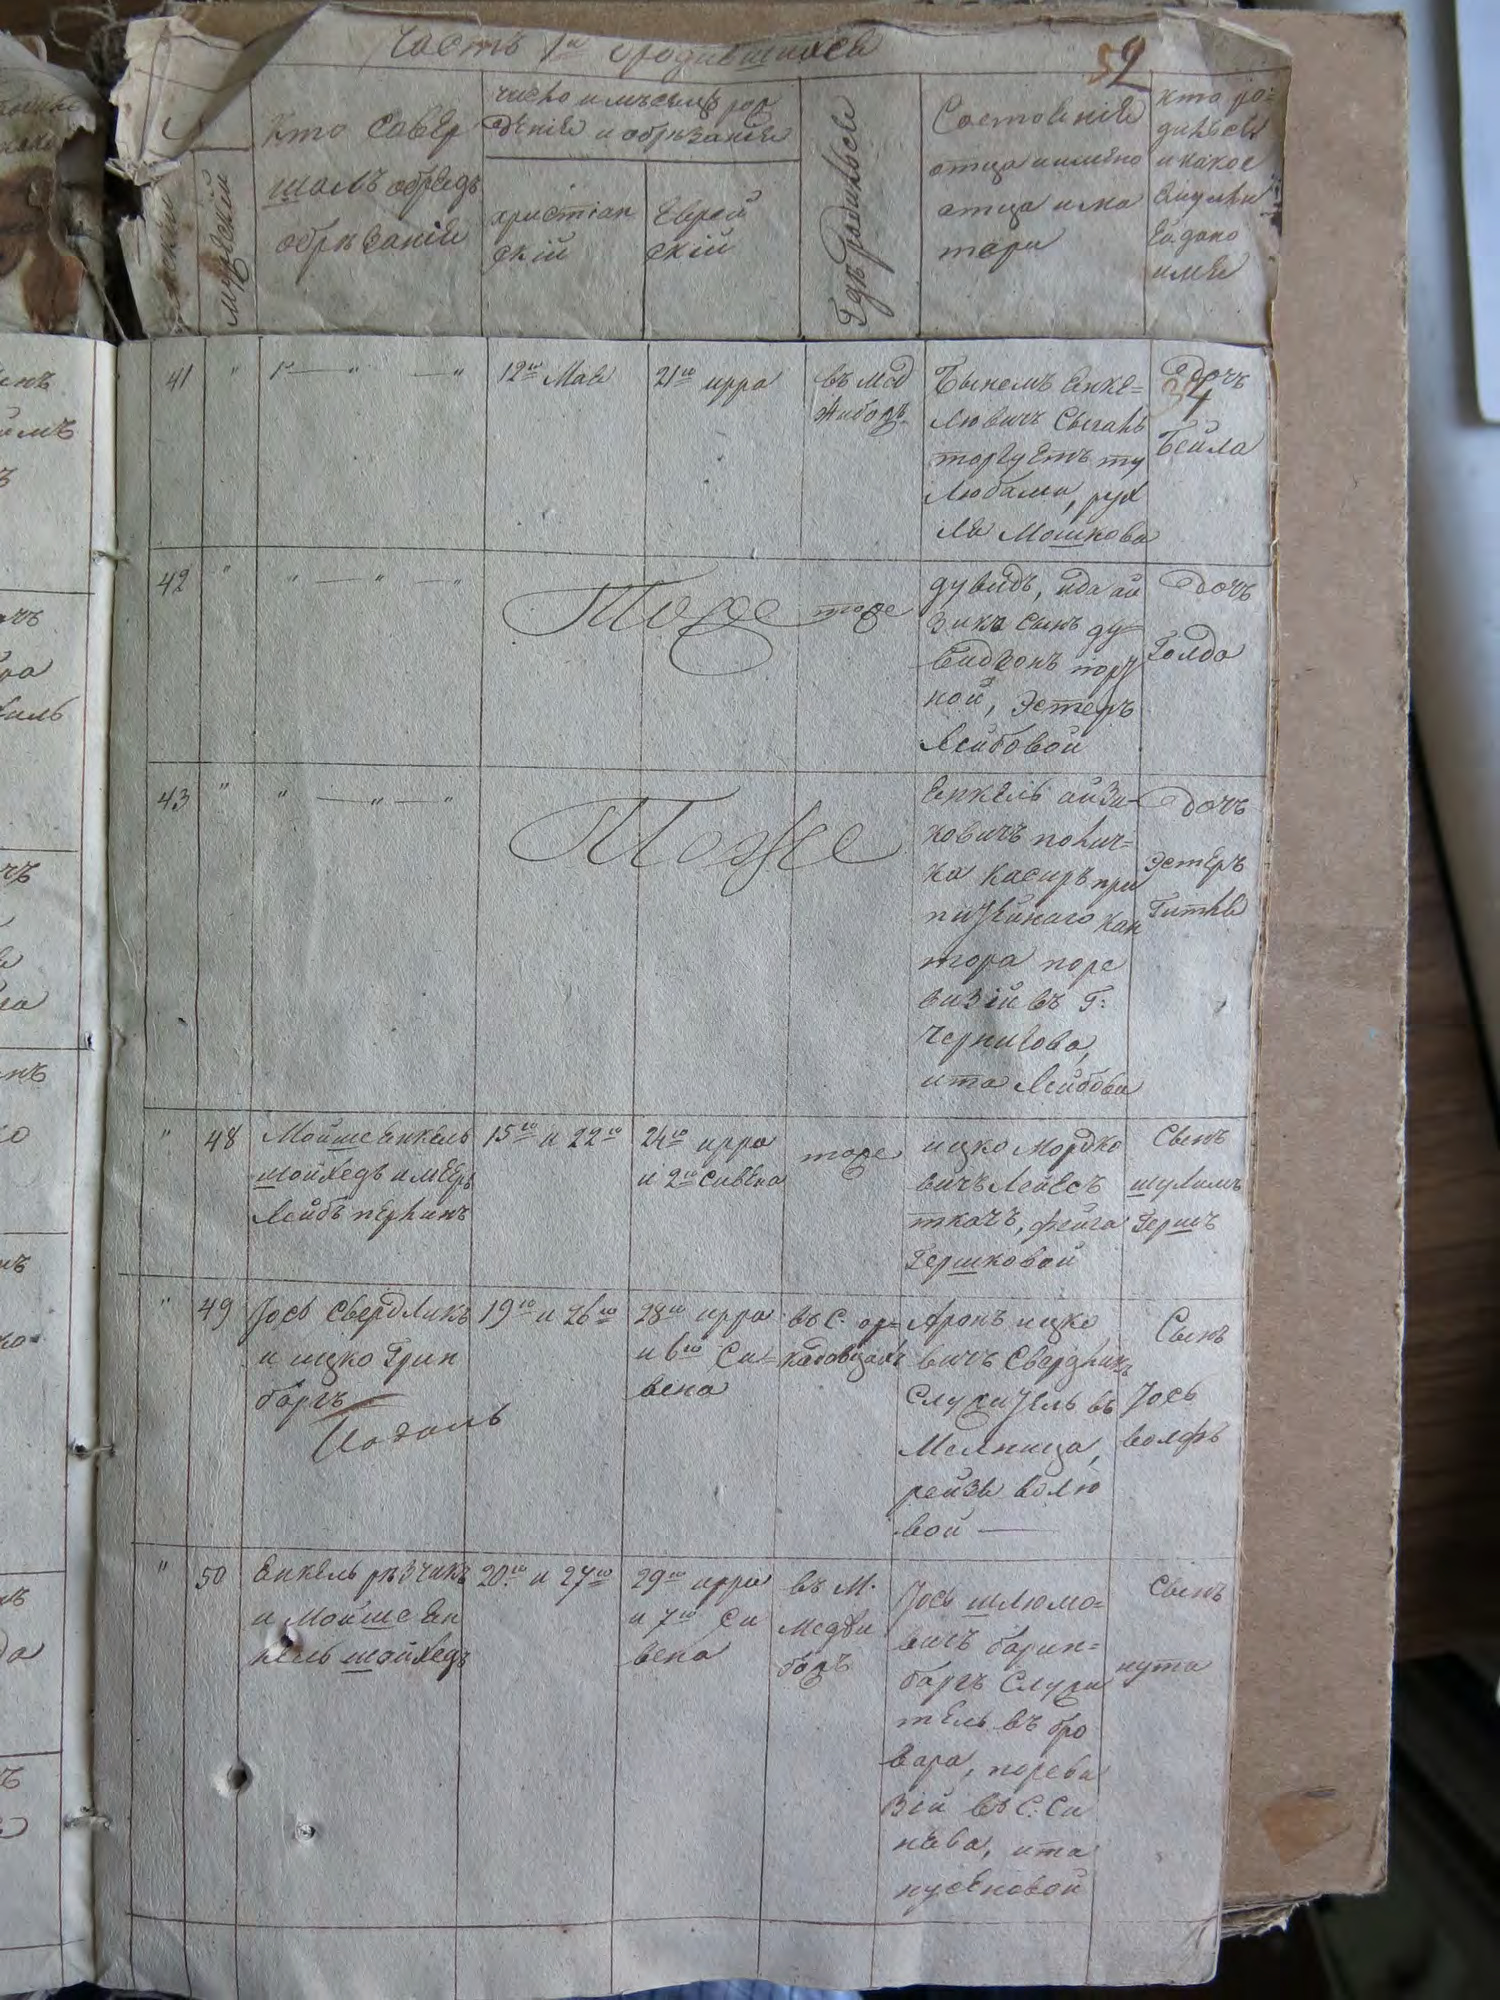 Часть 1я о родившихся
52
женский
мужеский
кто совер
шалъ обрядъ
обрѣзанія
число и мѣсяцъ рож
денія и обрѣзанія
христіан
скій
Еврей
скій
Гдѣ родился
Состояніе
отца и имена
отца и ма
тери
кто ро=
дился
и какое
ему или
ей дано
имя
41 " " — " — "
12го Мая
21го ирра
въ Мед
жибожъ
торгуетъ ту
лубами, рух
ля Мошкова
дочь
34
Бейла
42 " " — " — "
Тоже
тоже
дувидъ, ида ай
зика сынъ ду
видзонъ порт
ной, Эстеръ
Лейбовой
дочь
Голда
43 " " — " — "
Тоже
Енкель айзи=
ковичъ
ка касиръ при
питейнаго кан
тора по ре
визіи въ Г:
Чернигова,
ита Лейбова
дочь
Эстеръ
Гитля
" 48
Мойше Енкель
шойхедъ и Мееръ
Лейбъ перлинъ
15го и 22го
24го ирра
и 2го сивена
тоже
ицко Мордко
вичъ Лейесъ
ткачъ, фейга
Гершковой
Сынъ
шулимъ
Гершъ
" 49
Іось Свердликъ
и ицко Грин
баргъ
19го и 26го
28го ирра
и 6го Си=
вена
въ С:
Аронъ ицко
вичъ Свардликъ
Служитель въ
Мельница,
рейзя волю
вой —
Сынъ
Іось
волфъ
" 50
Енкель рѣзчикъ
и Мойше Ен
кель шойхедъ
20го и 27го
29го ирра
и 7го Си
вена
въ М.
Медзи
божъ
Іось шлюмо=
вичъ барин=
баргъ Служи
тель въ бро
вара, по реви
зіи въ С: Си
нява, ита
нусеновой
Сынъ
нута